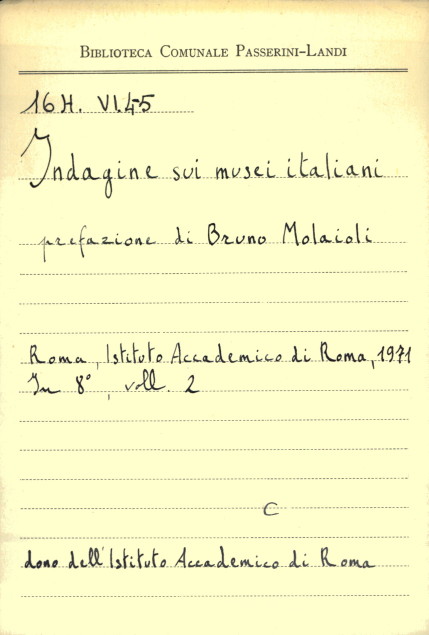 BIBLIOTECA COMUNALE PASSERINI-LANDI
16 H. VI.45
Indagine sui musei italiani
prefazione di Bruno Molaioli
Roma, Istituto Accademico di Roma, 1971
In 8°, voll. 2
C
dono dell'Istituto Accademico di Roma